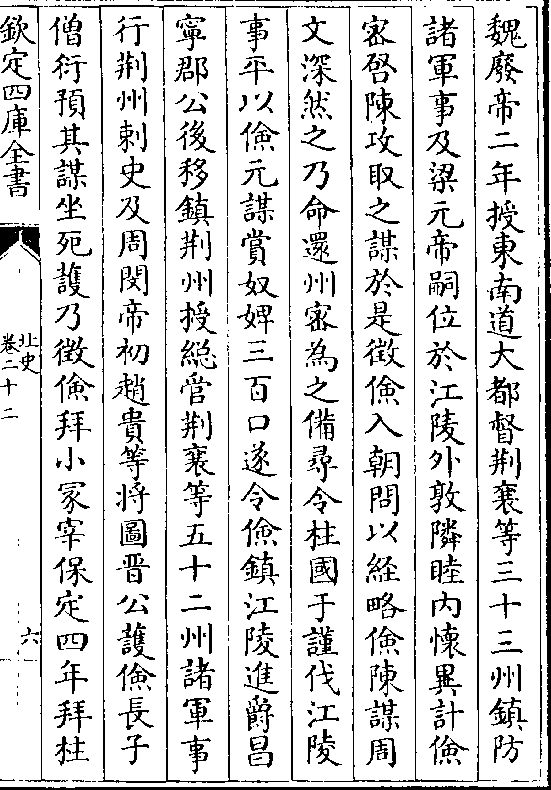 魏廢帝二年授東南道大都督荆襄等三十三州鎮防
諸軍事及梁元帝嗣位於江陵外敦隣睦内懷異計儉
宻啓陳攻取之謀於是徵儉入朝問以經略儉陳謀周
文深然之乃命還州宻為之備尋令柱國于謹伐江陵
事平以儉元謀賞奴婢三百口遂令儉鎮江陵進爵昌
寧郡公後移鎮荆州授總管荆襄等五十二州諸軍事
行荆州刺史及周閔帝初趙貴等將圖晋公護儉長子
僧衍預其謀坐死護乃徵儉拜小冢宰保定四年拜柱
欽定四庫全書
北史
卷二十二
六